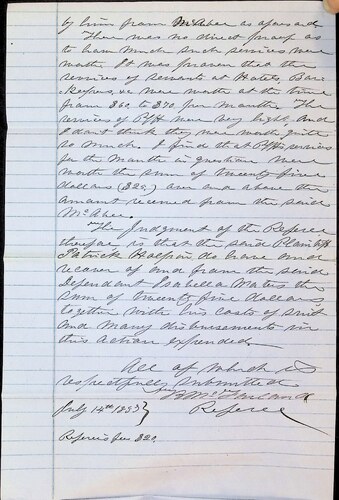 by him from McAbee as aforesaid.
There was no direct proof as
to how much such services were
worth. It was proven that the
services of servants at Hotels, Bar
Keepers, &c were worth at the time
from $60 to $70 per month. The
services of Plff were very light and
I don't think they were worth quite
so much. I find that Plffs services
for the month in question were
worth the sum of twenty five
dollars ($25) over and above the
amount received from the said
McAbee.
The Judgment of the Referee
therefore is that the said Plaintiff
Patrick do have and
recover of and from the said
Defendant Isabella the
sum of twenty five dollars,
together with his costs of suit
and many disbursements in
this action expended.
All of which is
respectfully submitted
July 14th
Referee
Referee's fee $20.